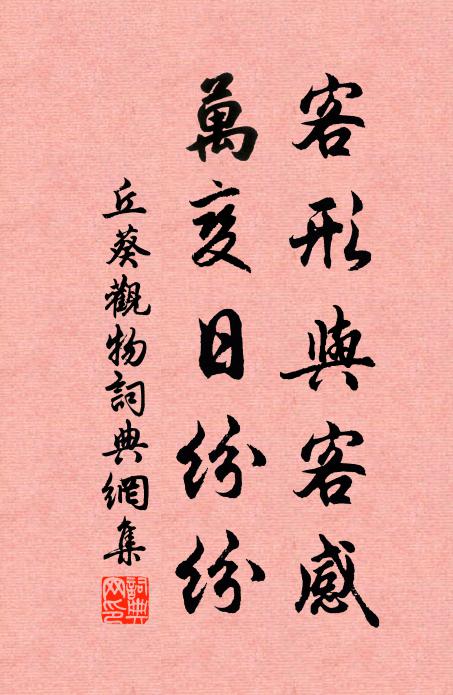 客形與客感
萬变日紛紛
丘葵觀物詞典網集
詞典
网印